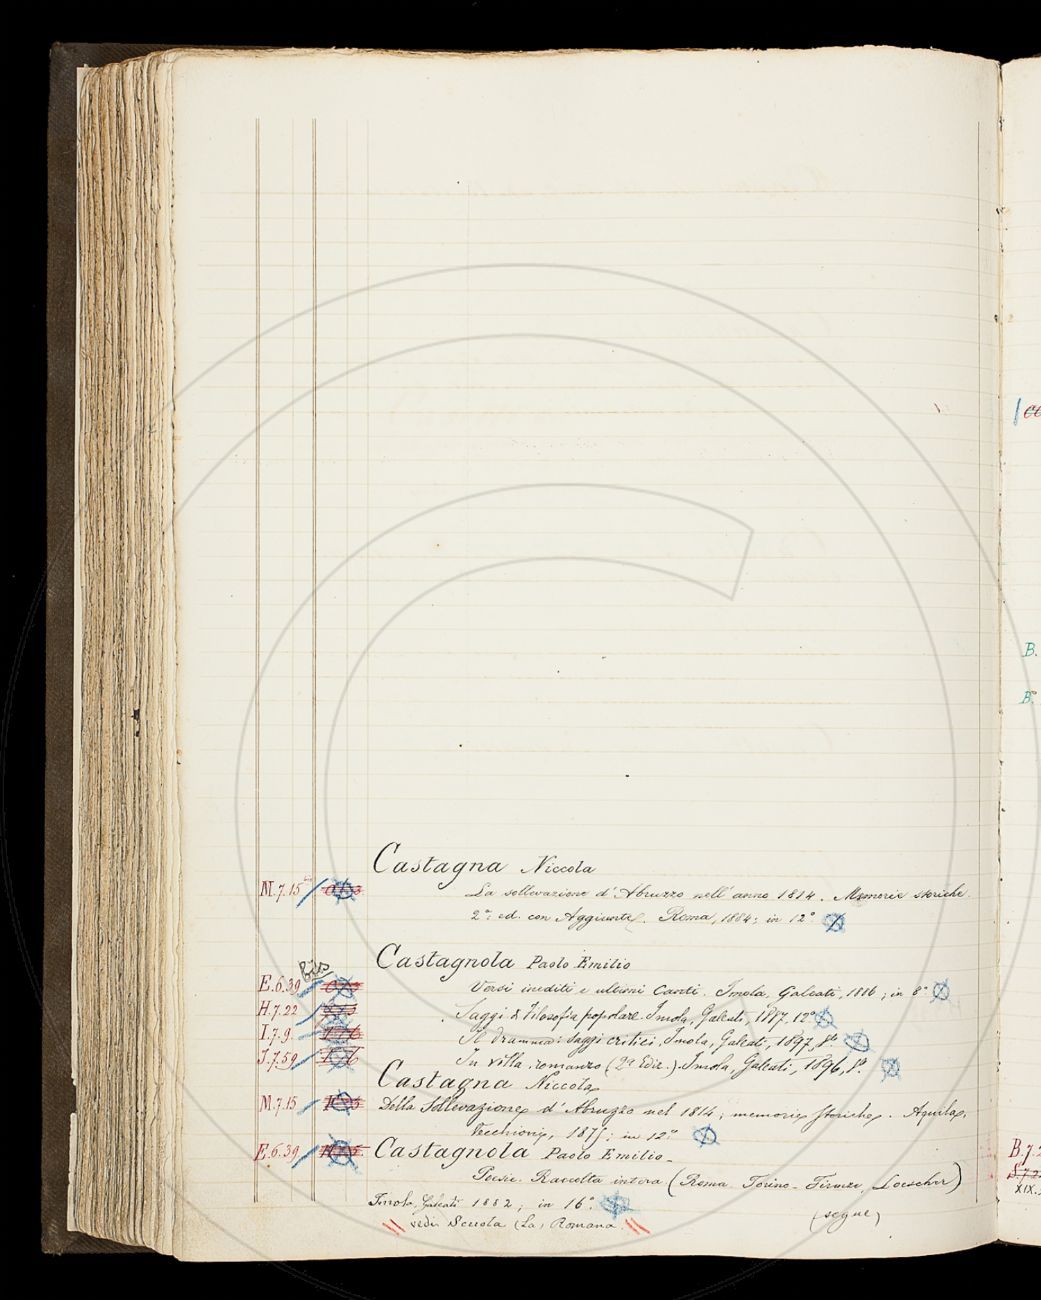 Castagna Niccola
M.7.15 La sollevazione d'Abruzzo nell'anno 1814. Memorie storiche.
2ª ed. con Aggiunte. Roma, 1884; in 12°
Castagnola Paolo Emilio
Bis
E.6.39 Versi inediti e ultimi Canti. Imola, Galeati, 1886; in 8°
H.7.22 Saggi di filosofia popolare. Imola, Galeati, 1887, 12°
I.7.9. Il dramma: saggi critici, Imola, Galeati, 1897, 8°
J.7.59 In villa, romanzo (2ª Ediz.). Imola, Galeati, 1896, 8°
Castagna Niccola
M.7.15 Della Sollevazione d'Abruzzo nel 1814; memorie storiche. Aquila,
Vecchioni, ; in 12°
E.6.39 Castagnola Paolo Emilio
Poesie. Raccolta intera (Roma. Torino. Firenze, Loescher)
Imola, Galeati 1882; in 16°
(segue)
vedi Scuola (La) Romana.
B.
B.
B.7.2
XIX.